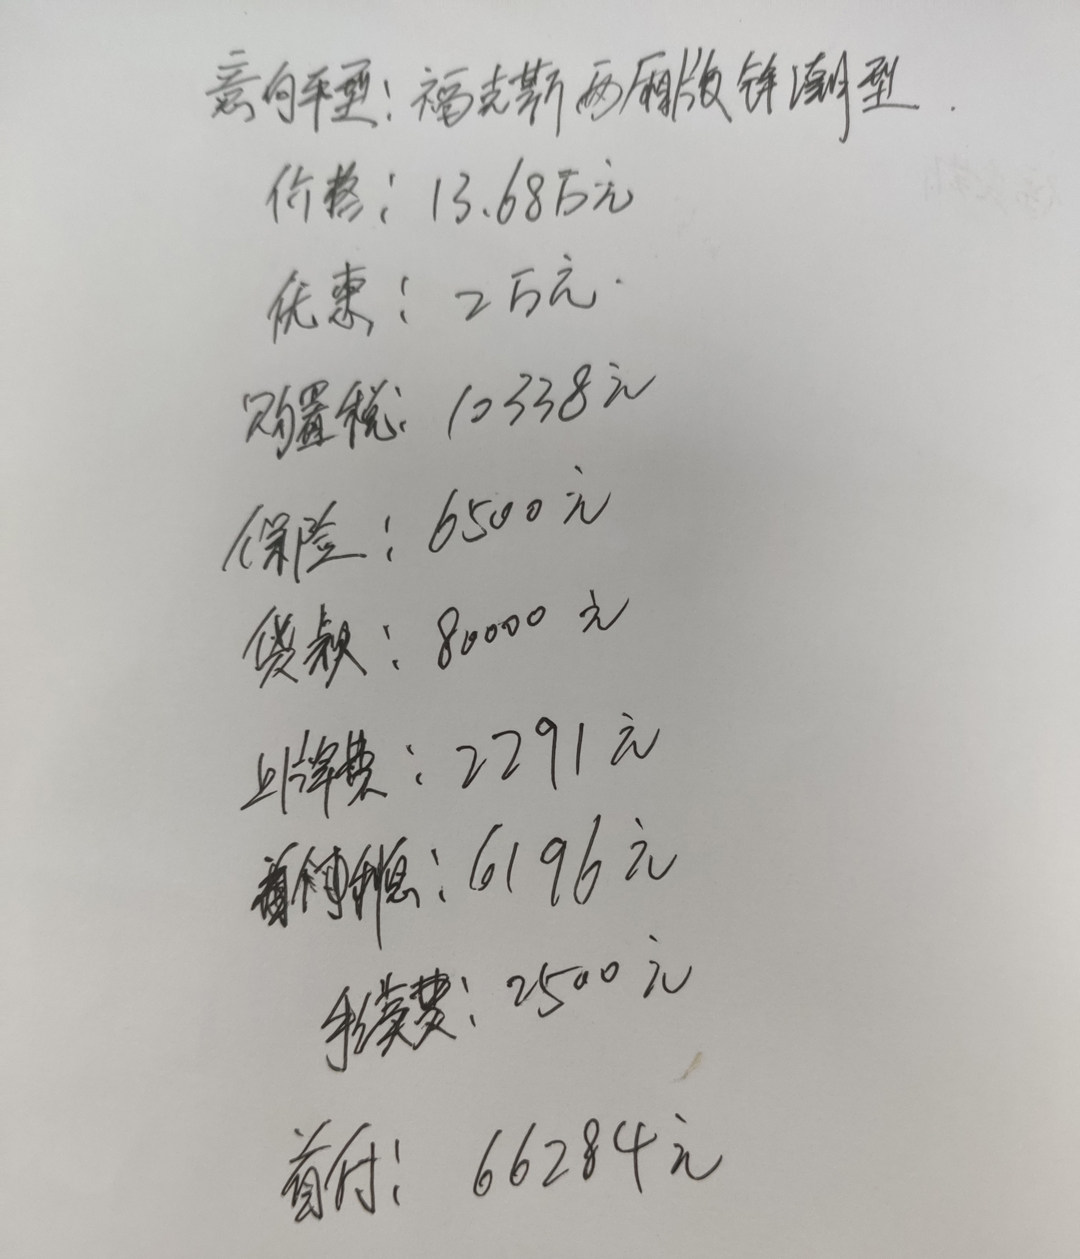 意向车型：福克斯两厢版锋潮型.
价格：13.68万元
优惠：2万元.
购置税：10338元
保险：6500元
贷款：80000元
上牌费：2291元
首付利息：6196元
手续费：2500元
首付：66284元